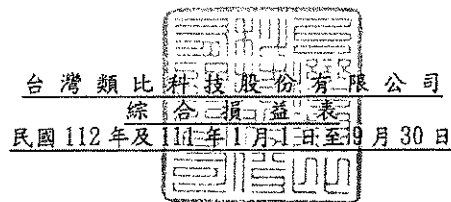 台灣類比科技股份有限公司
綜合損益表
民國 112 年及 111 年 1 月 1 日至 9 月 30 日